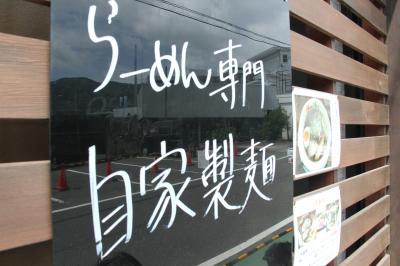 らーめん専門
自家製麺